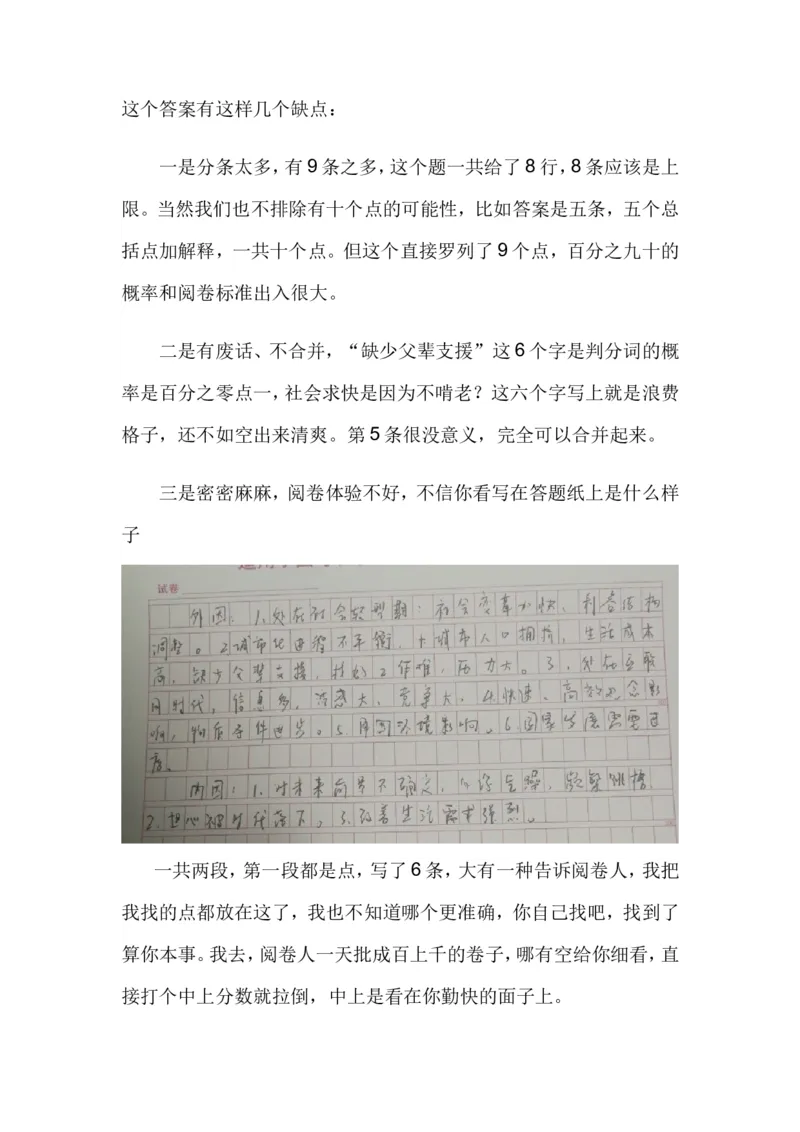 这个答案有这样几个缺点：
一是分条太多，有9条之多，这个题一共给了8行，8条应该是上
限。当然我们也不排除有十个点的可能性，比如答案是五条，五个总
括点加解释，一共十个点。但这个直接罗列了9个点，百分之九十的
概率和阅卷标准出入很大。
二是有废话、不合并，“缺少父辈支援”这6个字是判分词的概
率是百分之零点一，社会求快是因为不啃老？这六个字写上就是浪费
格子，还不如空出来清爽。第5条很没意义，完全可以合并起来。
三是密密麻麻，阅卷体验不好，不信你看写在答题纸上是什么样
子
试卷
外因：1.处在社会转型期：社会变革加快、利益结构
调整。2.城市化进程不平衡，大城市人口拥挤，生活成本
高，缺少父辈支援，找好工作难，压力大。3.处在互联
网时代，信息多，诱惑大，竞争大，4.快速、高效观念影
响，物质条件进步。5.周围环境影响。6.国家发展需要速
度。
内因：1.对未来向往不确定，心浮气躁，频繁跳槽
2.担心被时代落下，3.改善生活需求强烈。
一共两段，第一段都是点，写了6条，大有一种告诉阅卷人，我把
我找的点都放在这了，我也不知道哪个更准确，你自己找吧，找到了
算你本事。我去，阅卷人一天批成百上千的卷子，哪有空给你细看，直
接打个中上分数就拉倒，中上是看在你勤快的面子上。